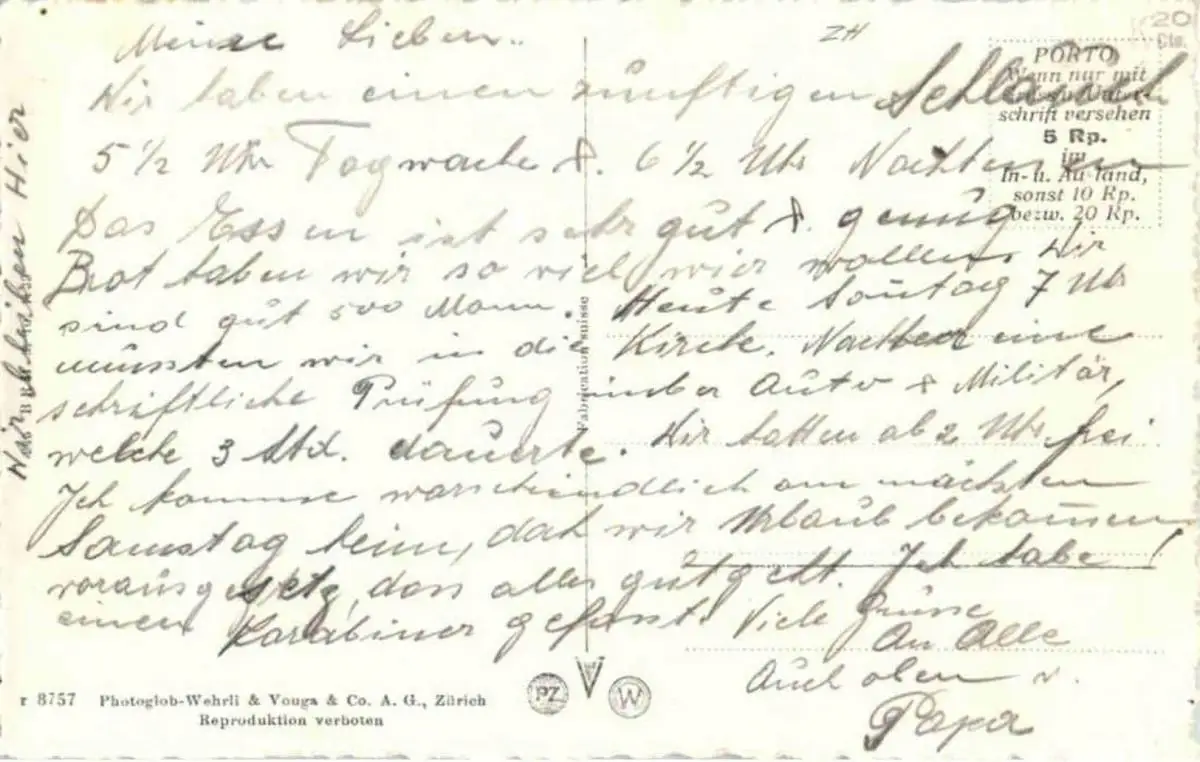 Meine Lieben..
Wir haben einen zünftigen Schlauch
5 1/2 Uhr Tagwache & 6 1/2 Uhr Nachtessen
Das Essen ist sehr gut & genug
Brot haben wir so viel wier wollen. Wir
sind gut 500 Mann. Heute Sontag 7 Uhr
müssten wir in die Kirche. Nachher eine
schriftliche Prüfung über Auto & Militär,
welche 3 Std. dauerte. Wir hatten ab 2 Uhr frei
Ich komme warscheindlich am nächsten
Samstag heim, dah wir Urlaub bekommen
vorausgesetz, dass alles gut geht. Ich habe !
einen Karabiner gefasst. Viele Grüsse
An Alle
Auch oben
Papa
Wir Hier
ZH
20
Cts.
PORTO
Wenn nur mit
schrift versehen
5 Rp.
im
In- u. Ausland,
sonst 10 Rp.
bezw. 20 Rp.
Fabrication suisse
r 8757 Photoglob-Wehrli & Vouga & Co. A. G., Zürich
Reproduktion verboten
PZ
W